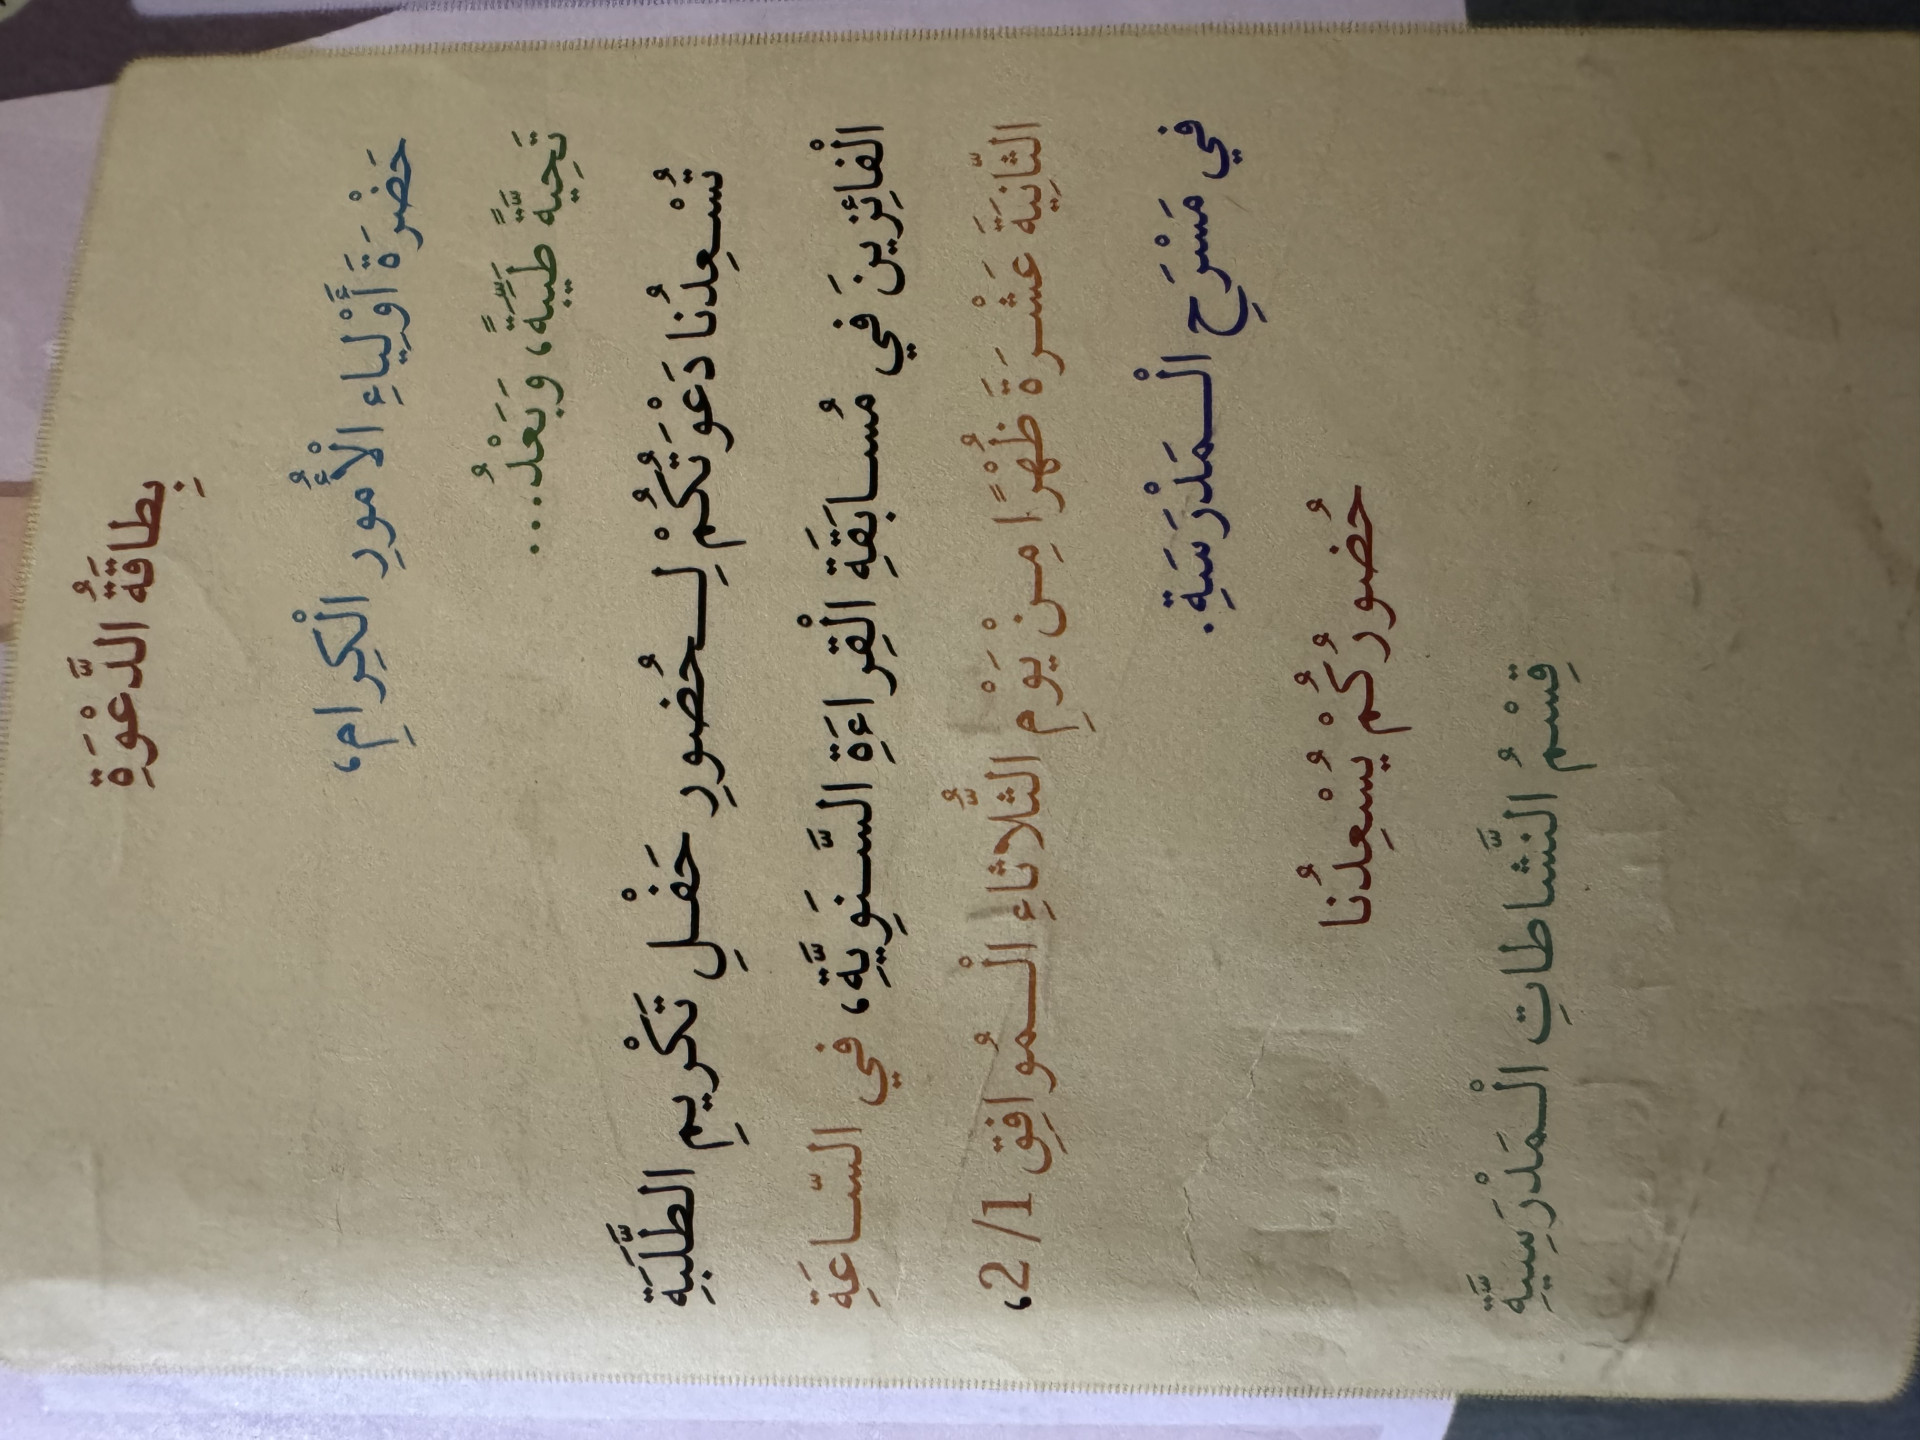 بِطاقَةُ الدَّعْوَةِ
حَضْرَةَ أَوْلِياءِ الْأُمُورِ الْكِرامِ،
تَحِيَّةً طَيِّبَةً، وَبَعْدُ...
يُسْعِدُنا دَعْوَتُكُمْ لِحُضُورِ حَفْلِ تَكْرِيمِ الطَّلَبَةِ
الْفائِزِينَ في مُسابَقَةِ الْقِراءَةِ السَّنَوِيَّةِ، في السّاعَةِ
الثّانِيَةَ عَشْرَةَ ظُهْرًا مِنْ يَوْمِ الثُّلاثاءِ الْمُوافِقِ 2/1،
في مَسْرَحِ الْمَدْرَسَةِ.
حُضُورُكُمْ يُسْعِدُنا
قِسْمُ النَّشاطاتِ الْمَدْرَسِيَّةِ